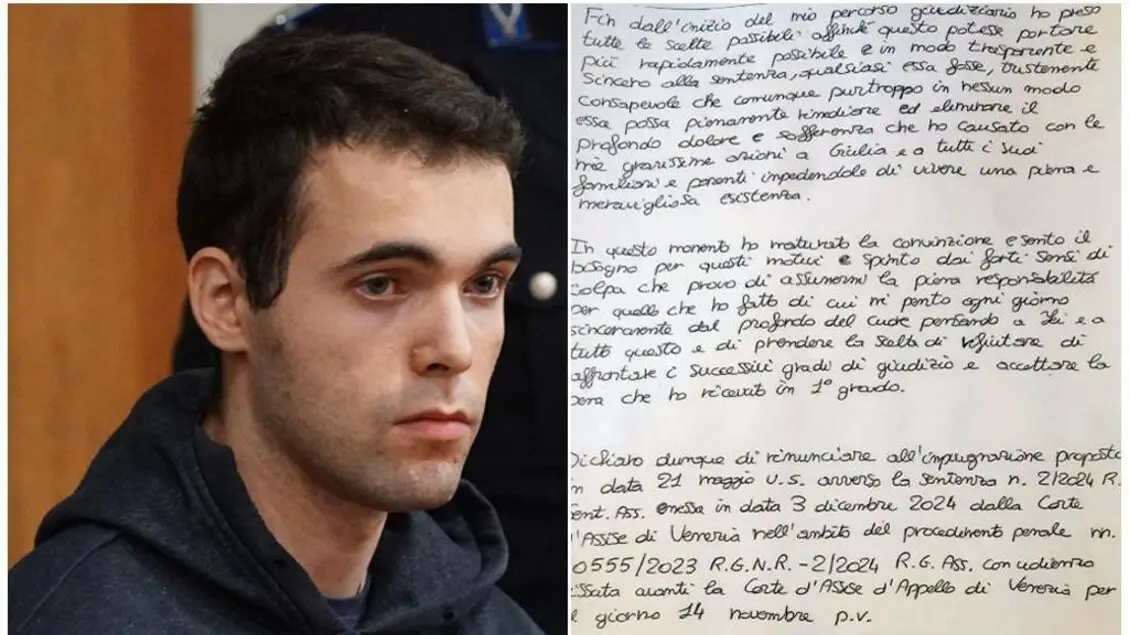 Fin dall'inizio del mio percorso giudiziario ho preso
tutte le scelte possibili affinché questo potesse portare
più rapidamente possibile e in modo trasparente e
sincero alla sentenza, qualsiasi essa fosse, tristemente
consapevole che comunque purtroppo in nessun modo
essa possa pienamente rimediare ed eliminare il
profondo dolore e sofferenza che ho causato con le
mie gravissime azioni a Giulia e a tutti i suoi
familiari e parenti impedendole di vivere una piena e
meravigliosa esistenza.
In questo momento ho maturato la convinzione e sento il
bisogno per questi motivi e spinto dai forti sensi di
colpa che provo di assumermi la piena responsabilità
per quello che ho fatto di cui mi pento ogni giorno
sinceramente dal profondo del cuore pensando a lei e a
tutto questo e di prendere la scelta di rifiutare di
affrontare i successivi gradi di giudizio e accettare la
pena che ho ricevuto in 1° grado.
Dichiaro dunque di rinunciare all'impugnazione proposta
in data 21 maggio u.s. avverso la sentenza n. 2/2024 R.
ent. Ass. emessa in data 3 dicembre 2024 dalla Corte
d'Assise di Venezia nell'ambito del procedimento penale n.
0555/2023 R.G.N.R. - 2/2024 R.G. Ass. con udienza
issata avanti la Corte d'Assise d'Appello di Venezia per
il giorno 14 novembre p.v.